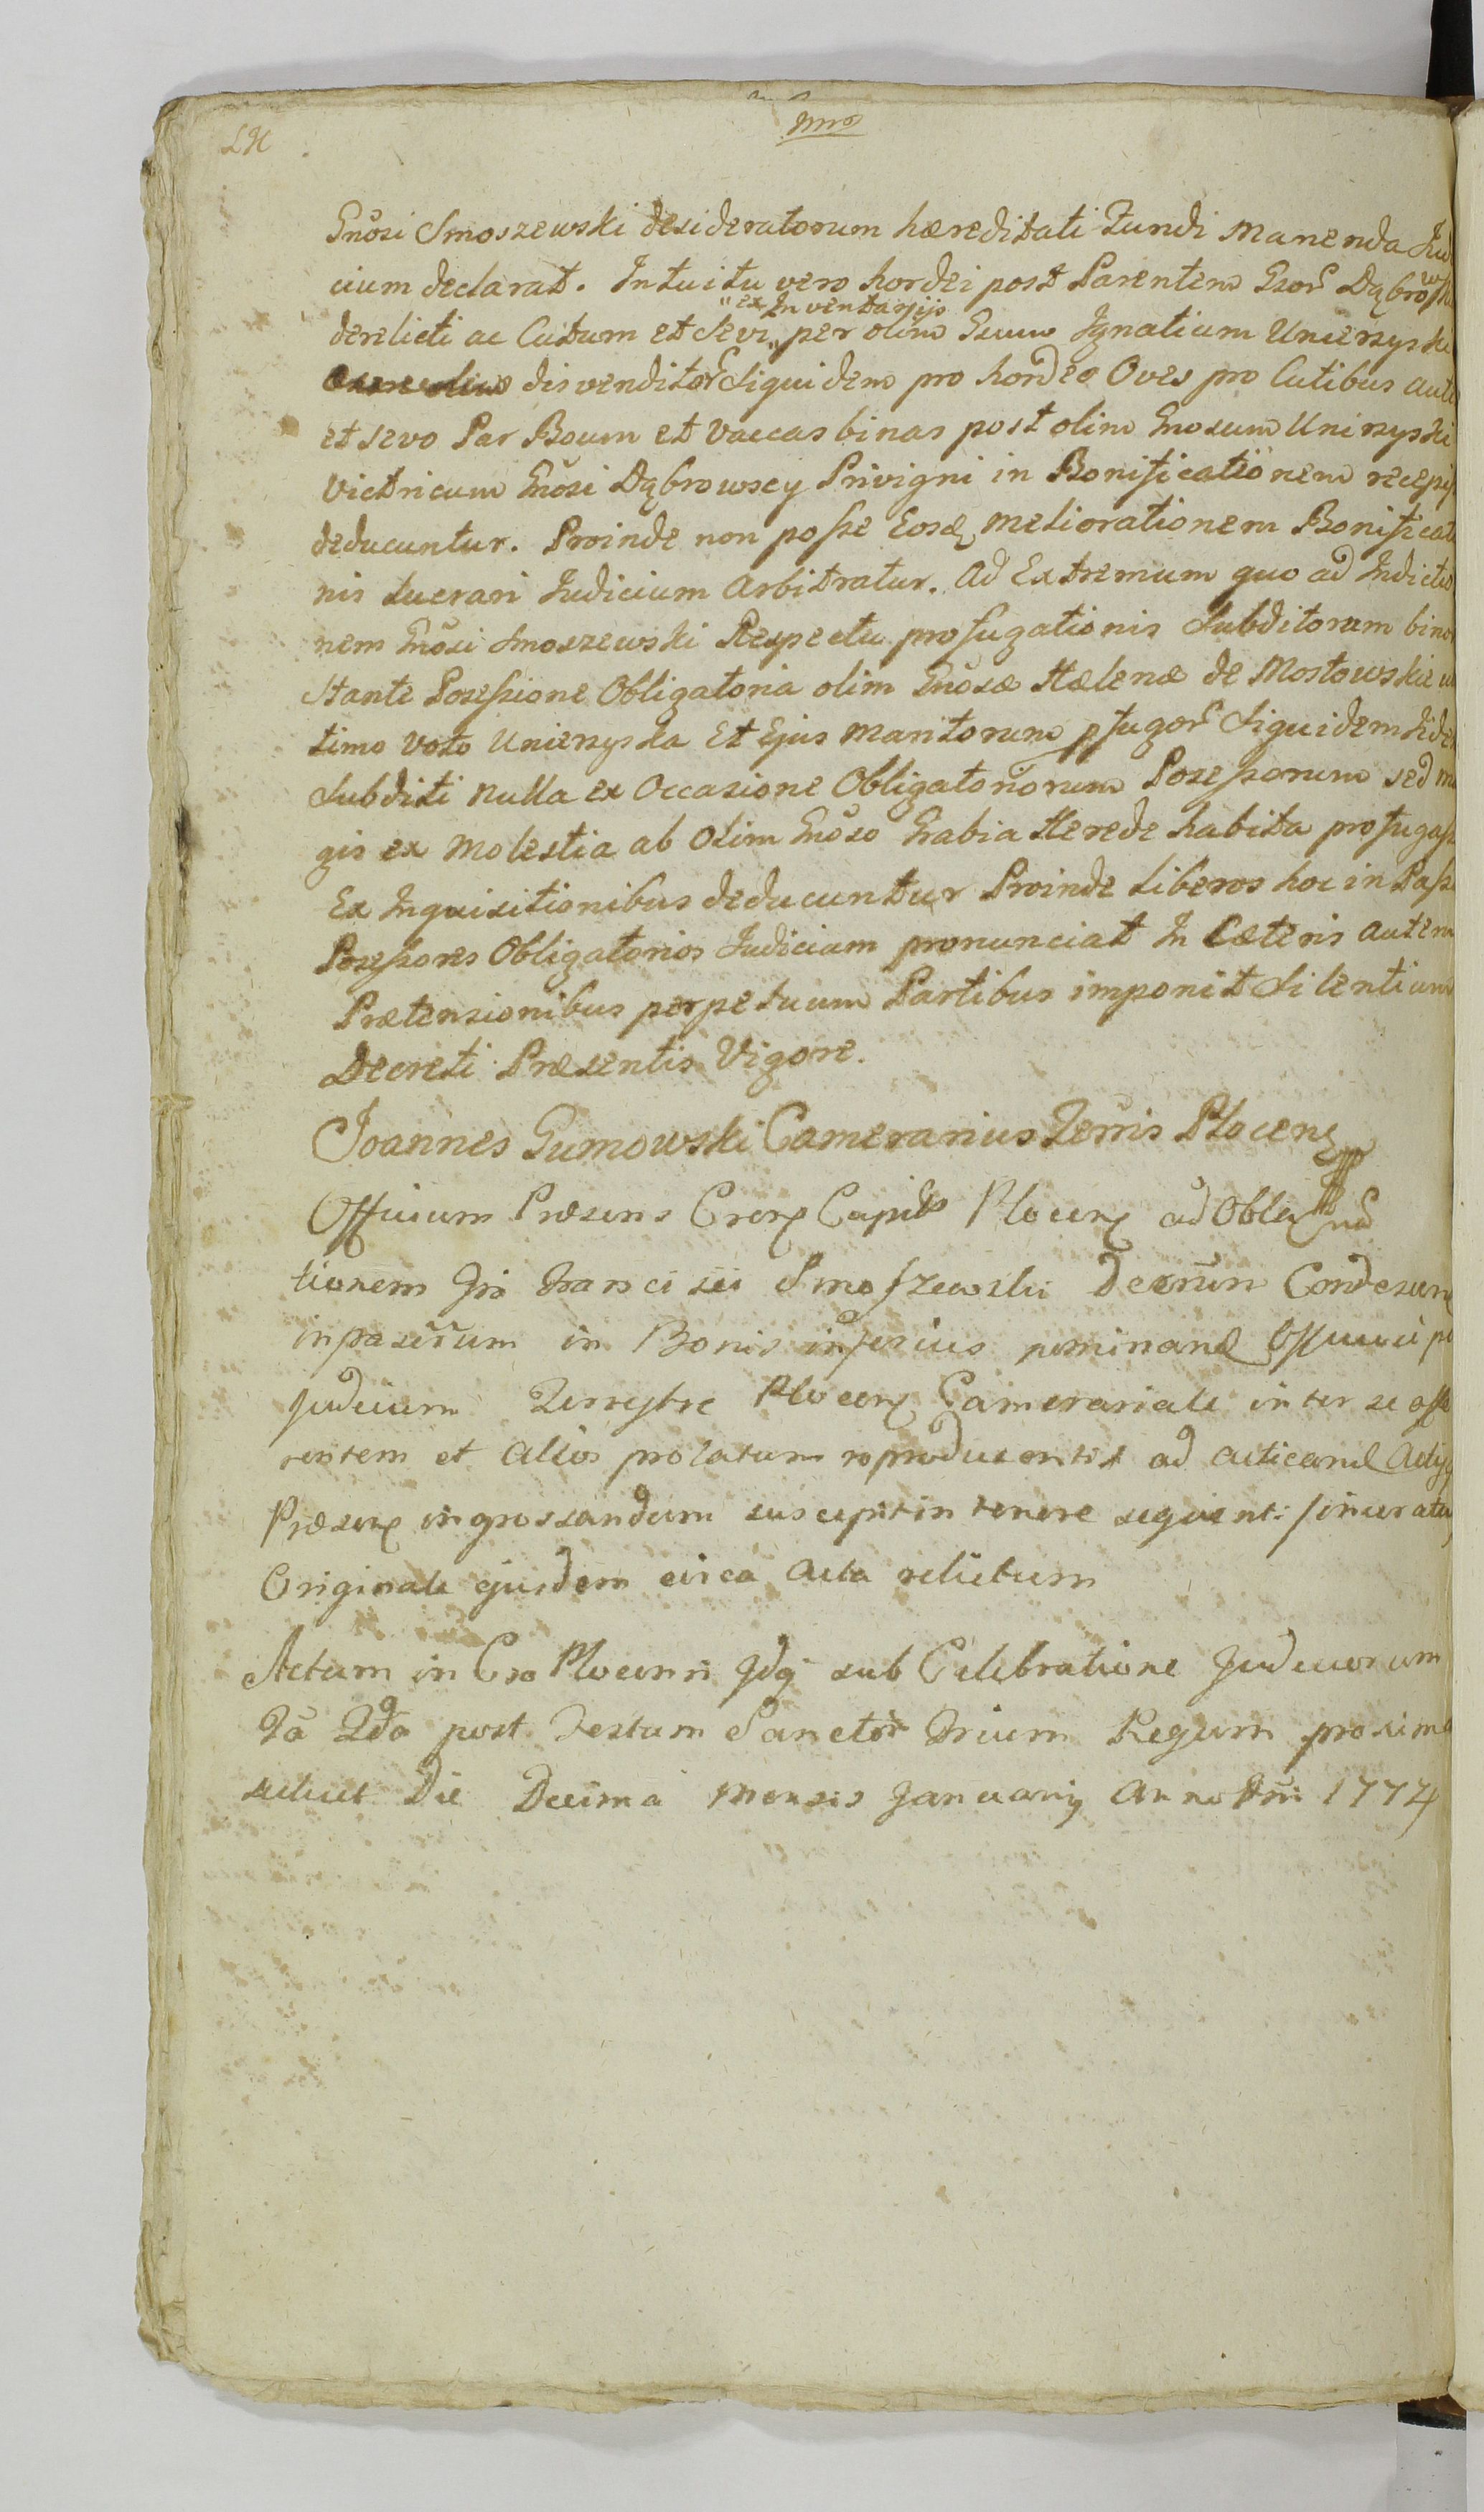 Gnosi Smoszewski desideratorum hæreditati Fundi manenda Iu
cium declarat. Intuitu vero hordei post Parentem Gsor Dąbrowsk
ex Inventarijs
derelicti ac Cutum et Sevi per olim Ignatium Unierzyski
disvenditor Siquidem pro hordeo Oves pro Cutibus aute
et sevo Par Boum et Vaccas binas post olim Gnosum Unierzyski
Victricum Gnosi Dąbrowscy Privigni in Bonificationem recepiss
deducuntur. Proinde non posse Eosq meliorationem Bonificat
nis lucrari Iudicium Arbitratur. Ad Extremum quo ad Indictio
nem Gnosi Smoszewski Respectu profugationis Subditorum bino
Stante Possessione Obligatoria olim Gnosæ Hælenæ de Mostowskie ul
timo Voto Unierzyska Et Ejus Maritorum pfugor Siquidem Iide
Subditi Nulla ex Occasione Obligatoriorum Possessorum sed ma
gis ex Molestia ab Olim Gnoso Grabia Herede habita profugass
Ex Inquisitionibus deducuntur Proinde Liberos hoc in Passu
Possessores Obligatorios Iudicium pronunciat In Cæteris autem
Prætensionibus perpetuum Partibus imponit Silentium
Decreti Præsentis Vigore.
Joannes Gumowski Camerarius Terris Plocens
Officium Præsens Crens Capitle Plocens ad Obla
tionem Gsi Francisci Smoszewski Decrum Condescens
in Bonis inferius nominand Officii
Judicium Terrestre Plocens Camerariale inter se offe
rentem et Alios prolatum reproducentis ad acticand Actisq
Præsens ingrossandum suscepit in tenore sequenti
Originale ejusdem circa Acta relictum
Actum in Cro Plocensi sub Celebratione Judiciorum
post Festum Sanctor Trium Regum proxima
scilicet Die Decima Mensis Januarij Anno Dni 1774